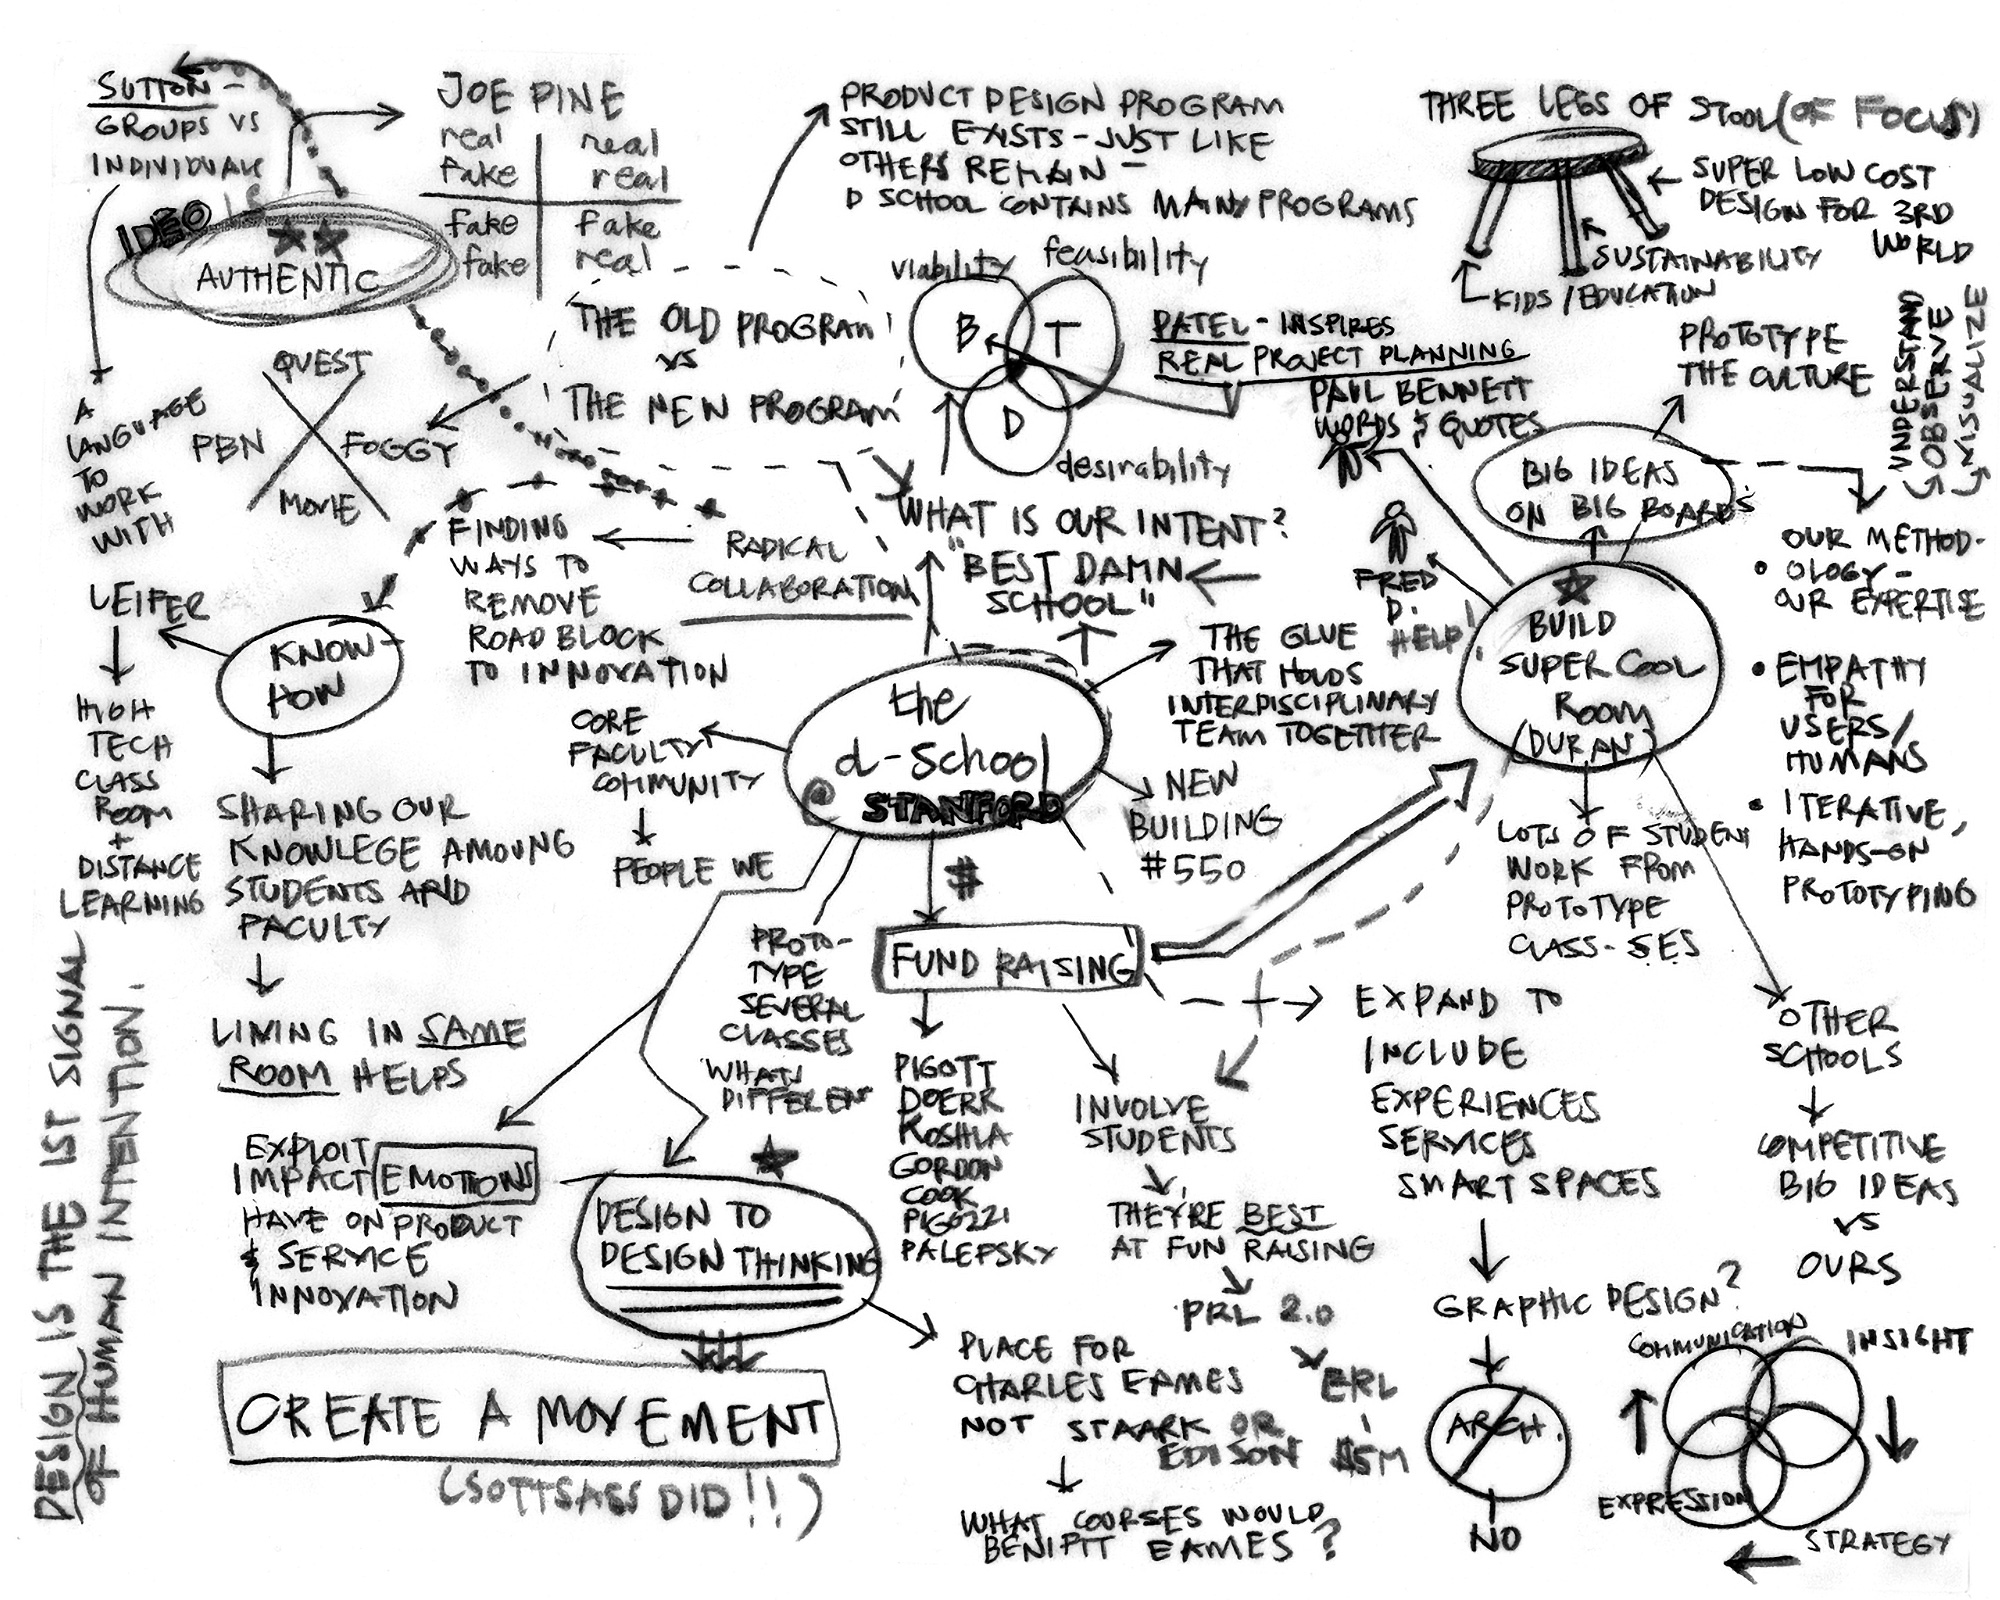 SUTTON -
GROUPS VS
INDIVIDUALS
IDEO IS
AUTHENTIC
JOE PINE
real
fake
real
real
fake
fake
fake
real
PRODUCT DESIGN PROGRAM
STILL EXISTS - JUST LIKE
OTHERS REMAIN -
D SCHOOL CONTAINS MAINY PROGRAMS
THREE LEGS OF STOOL (OF FOCUS)
SUPER LOW COST
DESIGN FOR 3RD
WORLD
SUSTAINABILITY
KIDS / EDUCATION
viability
feasibility
B
T
D
desirability
THE OLD PROGRAM
VS
THE NEW PROGRAM
PATEL - INSPIRES
REAL PROJECT PLANNING
PAUL BENNETT
WORDS & QUOTES
PROTOTYPE
THE CULTURE
UNDERSTAND
OBSERVE
VISUALIZE
BIG IDEAS
ON BIG BOARDS
OUR METHOD-
• OLOGY -
OUR EXPERTISE
• EMPATHY
FOR
USERS/
HUMANS
• ITERATIVE,
HANDS-ON
PROTOTYPING
A
LANGUAGE
TO
WORK
WITH
QUEST
PBN
FOGGY
MOVIE
FINDING
WAYS TO
REMOVE
ROAD BLOCK
TO INNOVATION
RADICAL
COLLABORATION
WHAT IS OUR INTENT?
"BEST DAMN
SCHOOL"
FRED
D.
HELP!
BUILD
SUPER COOL
ROOM
(DURAN)
LEIFER
HIGH
TECH
CLASS
ROOM
+
DISTANCE
LEARNING
KNOW-
HOW
SHARING OUR
KNOWLEGE AMOUNG
STUDENTS AND
FACULTY
LIVING IN SAME
ROOM HELPS
CORE
FACULTY
COMMUNITY
PEOPLE WE
the
d-school
@ STANFORD
THE GLUE
THAT HOLDS
INTERDISCIPLINARY
TEAM TOGETHER
NEW
BUILDING
#550
#
FUND RAISING
LOTS OF STUDENT
WORK FROM
PROTOTYPE
CLASS-SES
PROTO-
TYPE
SEVERAL
CLASSES
WHATS
DIFFERENT
PIGOTT
DOERR
KOSHLA
GORDON
COOK
PIGOZZI
PALEFSKY
INVOLVE
STUDENTS
THEY'RE BEST
AT FUN RAISING
PRL 2.0
ERL
$5M
EXPAND TO
INCLUDE
EXPERIENCES
SERVICES
SMART SPACES
GRAPHIC DESIGN?
ARCH.
NO
OTHER
SCHOOLS
COMPETITIVE
BIG IDEAS
VS
OURS
COMMUNICATION
INSIGHT
EXPRESSION
STRATEGY
EXPLOIT
IMPACT EMOTIONS
HAVE ON PRODUCT
& SERVICE
INNOVATION
DESIGN TO
DESIGN THINKING
CREATE A MOVEMENT
(SOTTSASS DID!!)
PLACE FOR
CHARLES EAMES
NOT STAARK OR
EDISON
WHAT COURSES WOULD
BENIFIT EAMES?
DESIGN IS THE 1ST SIGNAL
OF HUMAN INTENTION.